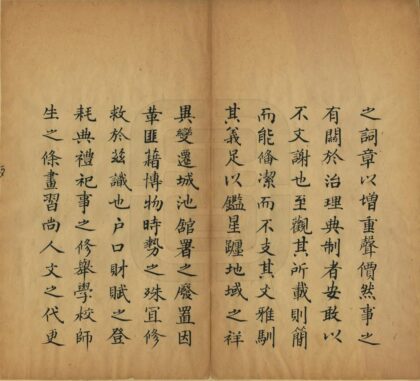 之詞章以增重聲價然事之
有關於治理典制者安敢以
不文謝也至觀其所載則簡
而能俻潔而不支其文雅馴
其義足以鑑星躔地域之祥
異變遷城池館署之廢置因
革匪藉博物時勢之殊宜修
救於兹識也户口財賦之登
耗典禮祀事之修舉學校師
生之條畫習尚人文之代更